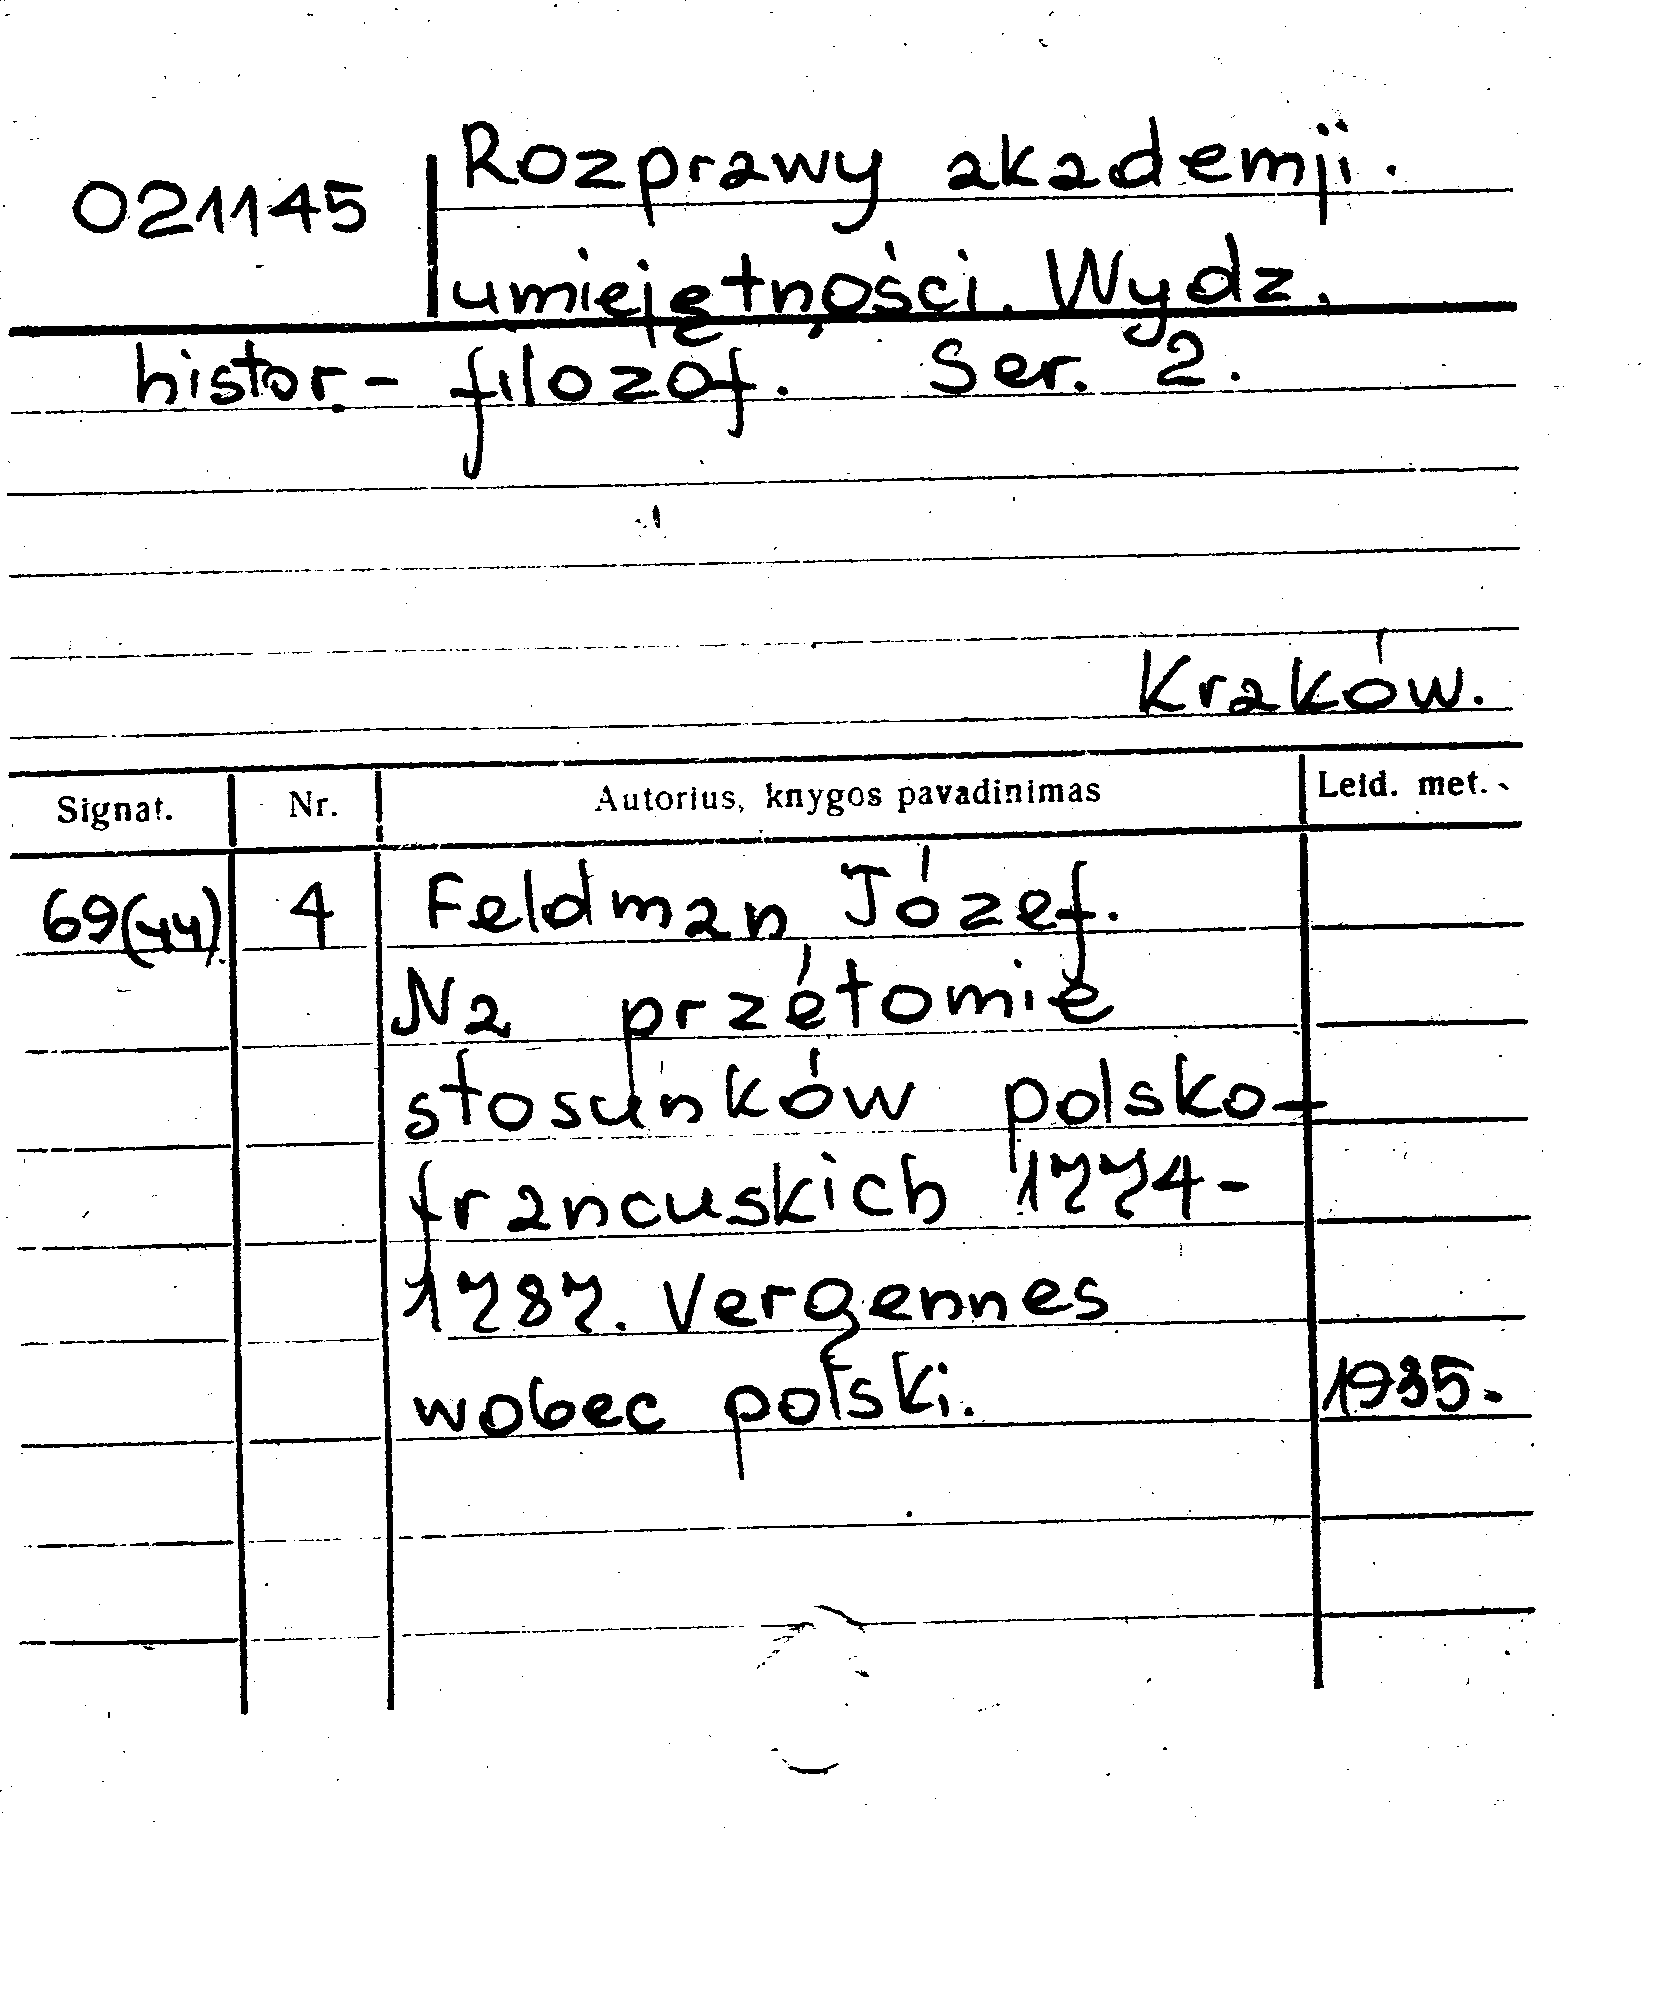 021145 Rozprawy akademji.
umiejętności. Wydz.
histor.- filozof. Ser. 2.
Kraków.
Signat. Nr. Autorius, knygos pavadinimas Leid. met.
69(44) 4 Feldman Józef.
Na przétomie
stosunków polsko-
francuskich 1774-
1787. Vergennes
wobec polski. 1935.